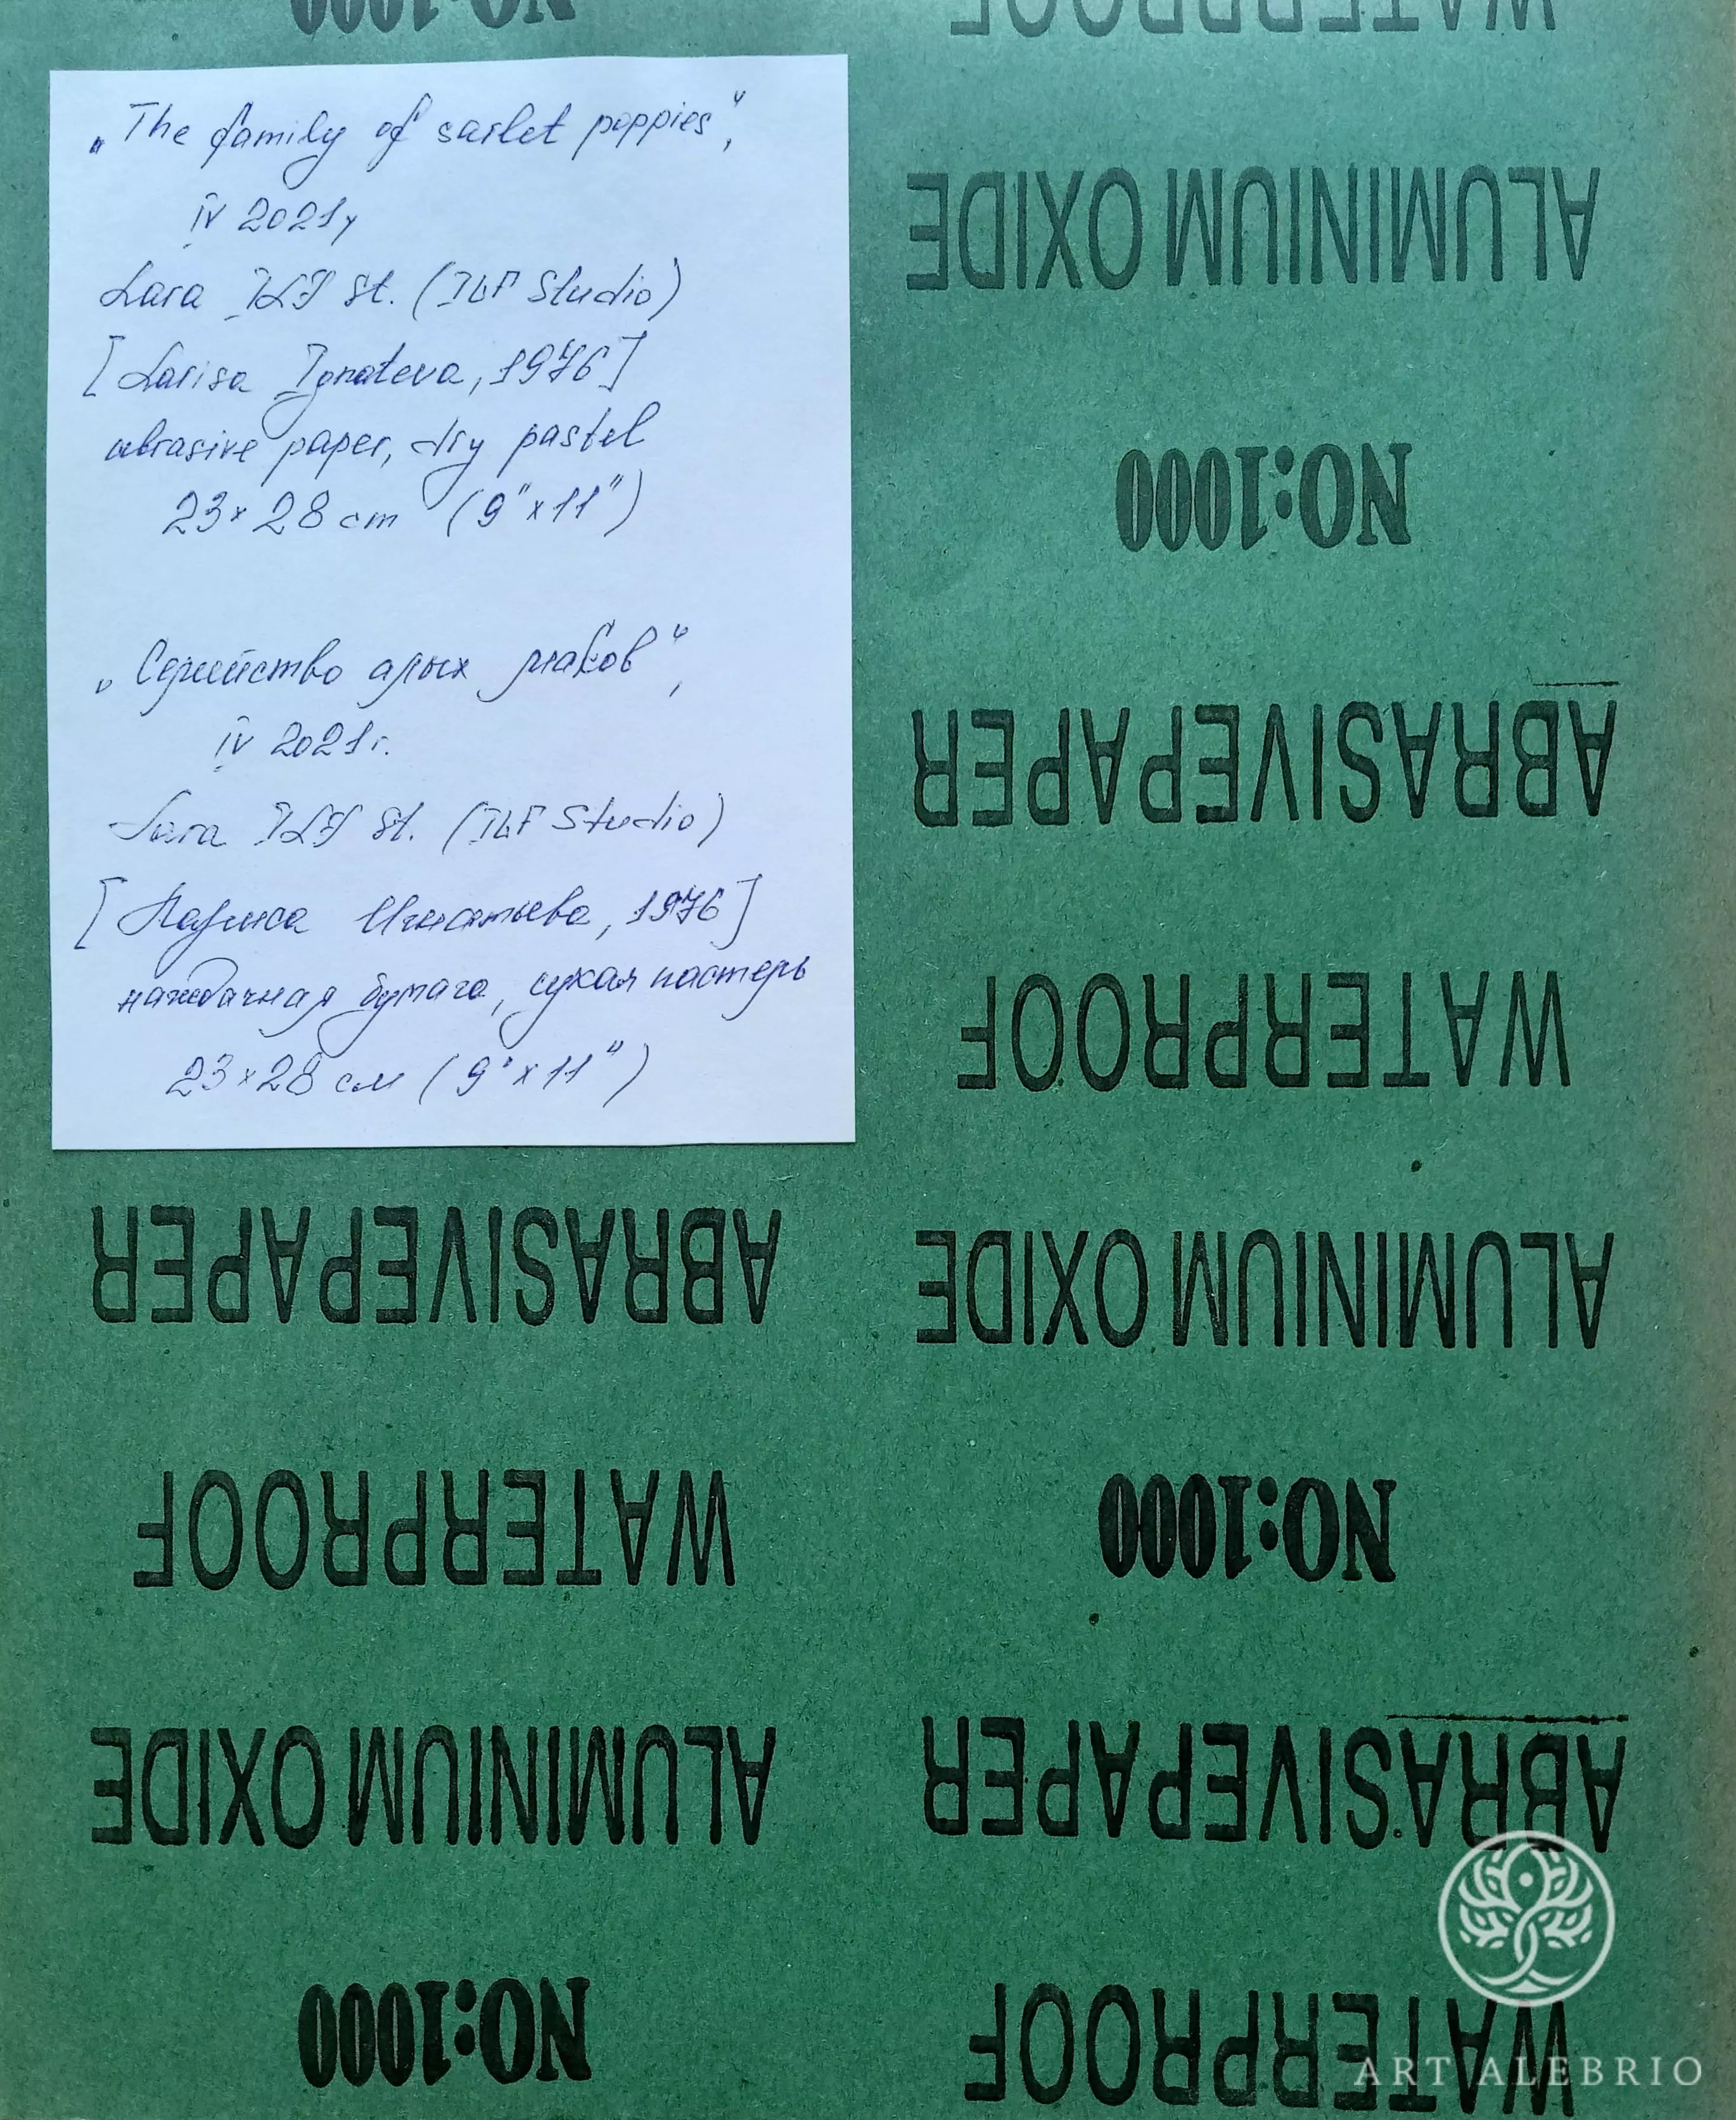 NO:1000
WATERPROOF
„The family of sarlet poppies",
IV 2021y
Lara ILF St. (ILF Studio)
[Larisa Ignateva, 1976]
abrasive paper, dry pastel
23×28 cm (9"×11")
„Семейство алых маков",
IV 2021г.
Lara ILF St. (ILF Studio)
[Лариса Игнатьева, 1976]
наждачная бумага, сухая пастель
23×28 см (9"×11")
ALUMINIUM OXIDE
NO:1000
ABRASIVEPAPER
WATERPROOF
ABRASIVEPAPER
ALUMINIUM OXIDE
WATERPROOF
NO:1000
ALUMINIUM OXIDE
ABRASIVEPAPER
NO:1000
WATERPROOF
ART ALEBRIO